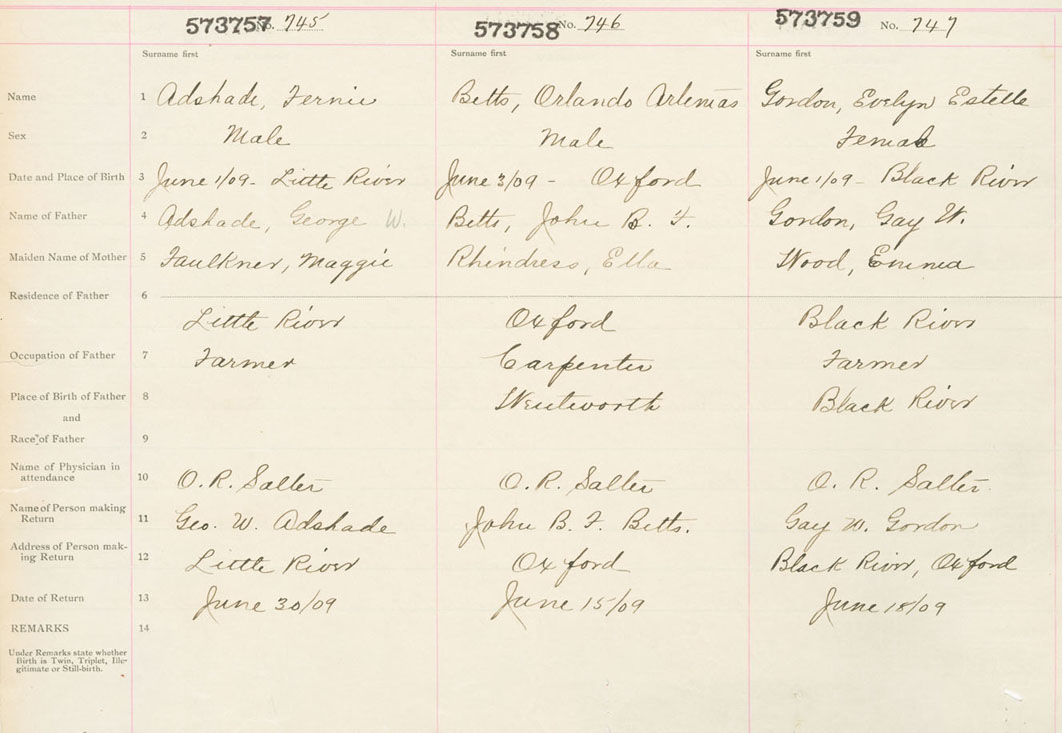 573757 No. 745 573758 No. 746 573759 No. 747
Surname first Surname first Surname first
Name 1 Adshade, Fernie Betts, Orlando Artemas Gordon, Evelyn Estelle
Sex 2 Male Male Female
Date and Place of Birth 3 June 1/09 - Little River June 3/09 - Oxford June 1/09 - Black River
Name of Father 4 Adshade, George W. Betts, John B. F. Gordon, Gay W.
Maiden Name of Mother 5 Faulkner, Maggie Rhindress, Ella Wood, Emma
Residence of Father 6
Little River Oxford Black River
Occupation of Father 7 Farmer Carpenter Farmer
Place of Birth of Father 8 Wentworth Black River
and
Race of Father 9
Name of Physician in
attendance 10 O. R. Salter O. R. Salter O. R. Salter
Name of Person making
Return 11 Geo. W. Adshade John B. F. Betts. Gay W. Gordon
Address of Person mak-
ing Return 12 Little River Oxford Black River, Oxford
Date of Return 13 June 30/09 June 15/09 June 18/09
REMARKS 14
Under Remarks state whether
Birth is Twin, Triplet, Ille-
gitimate or Still-birth.